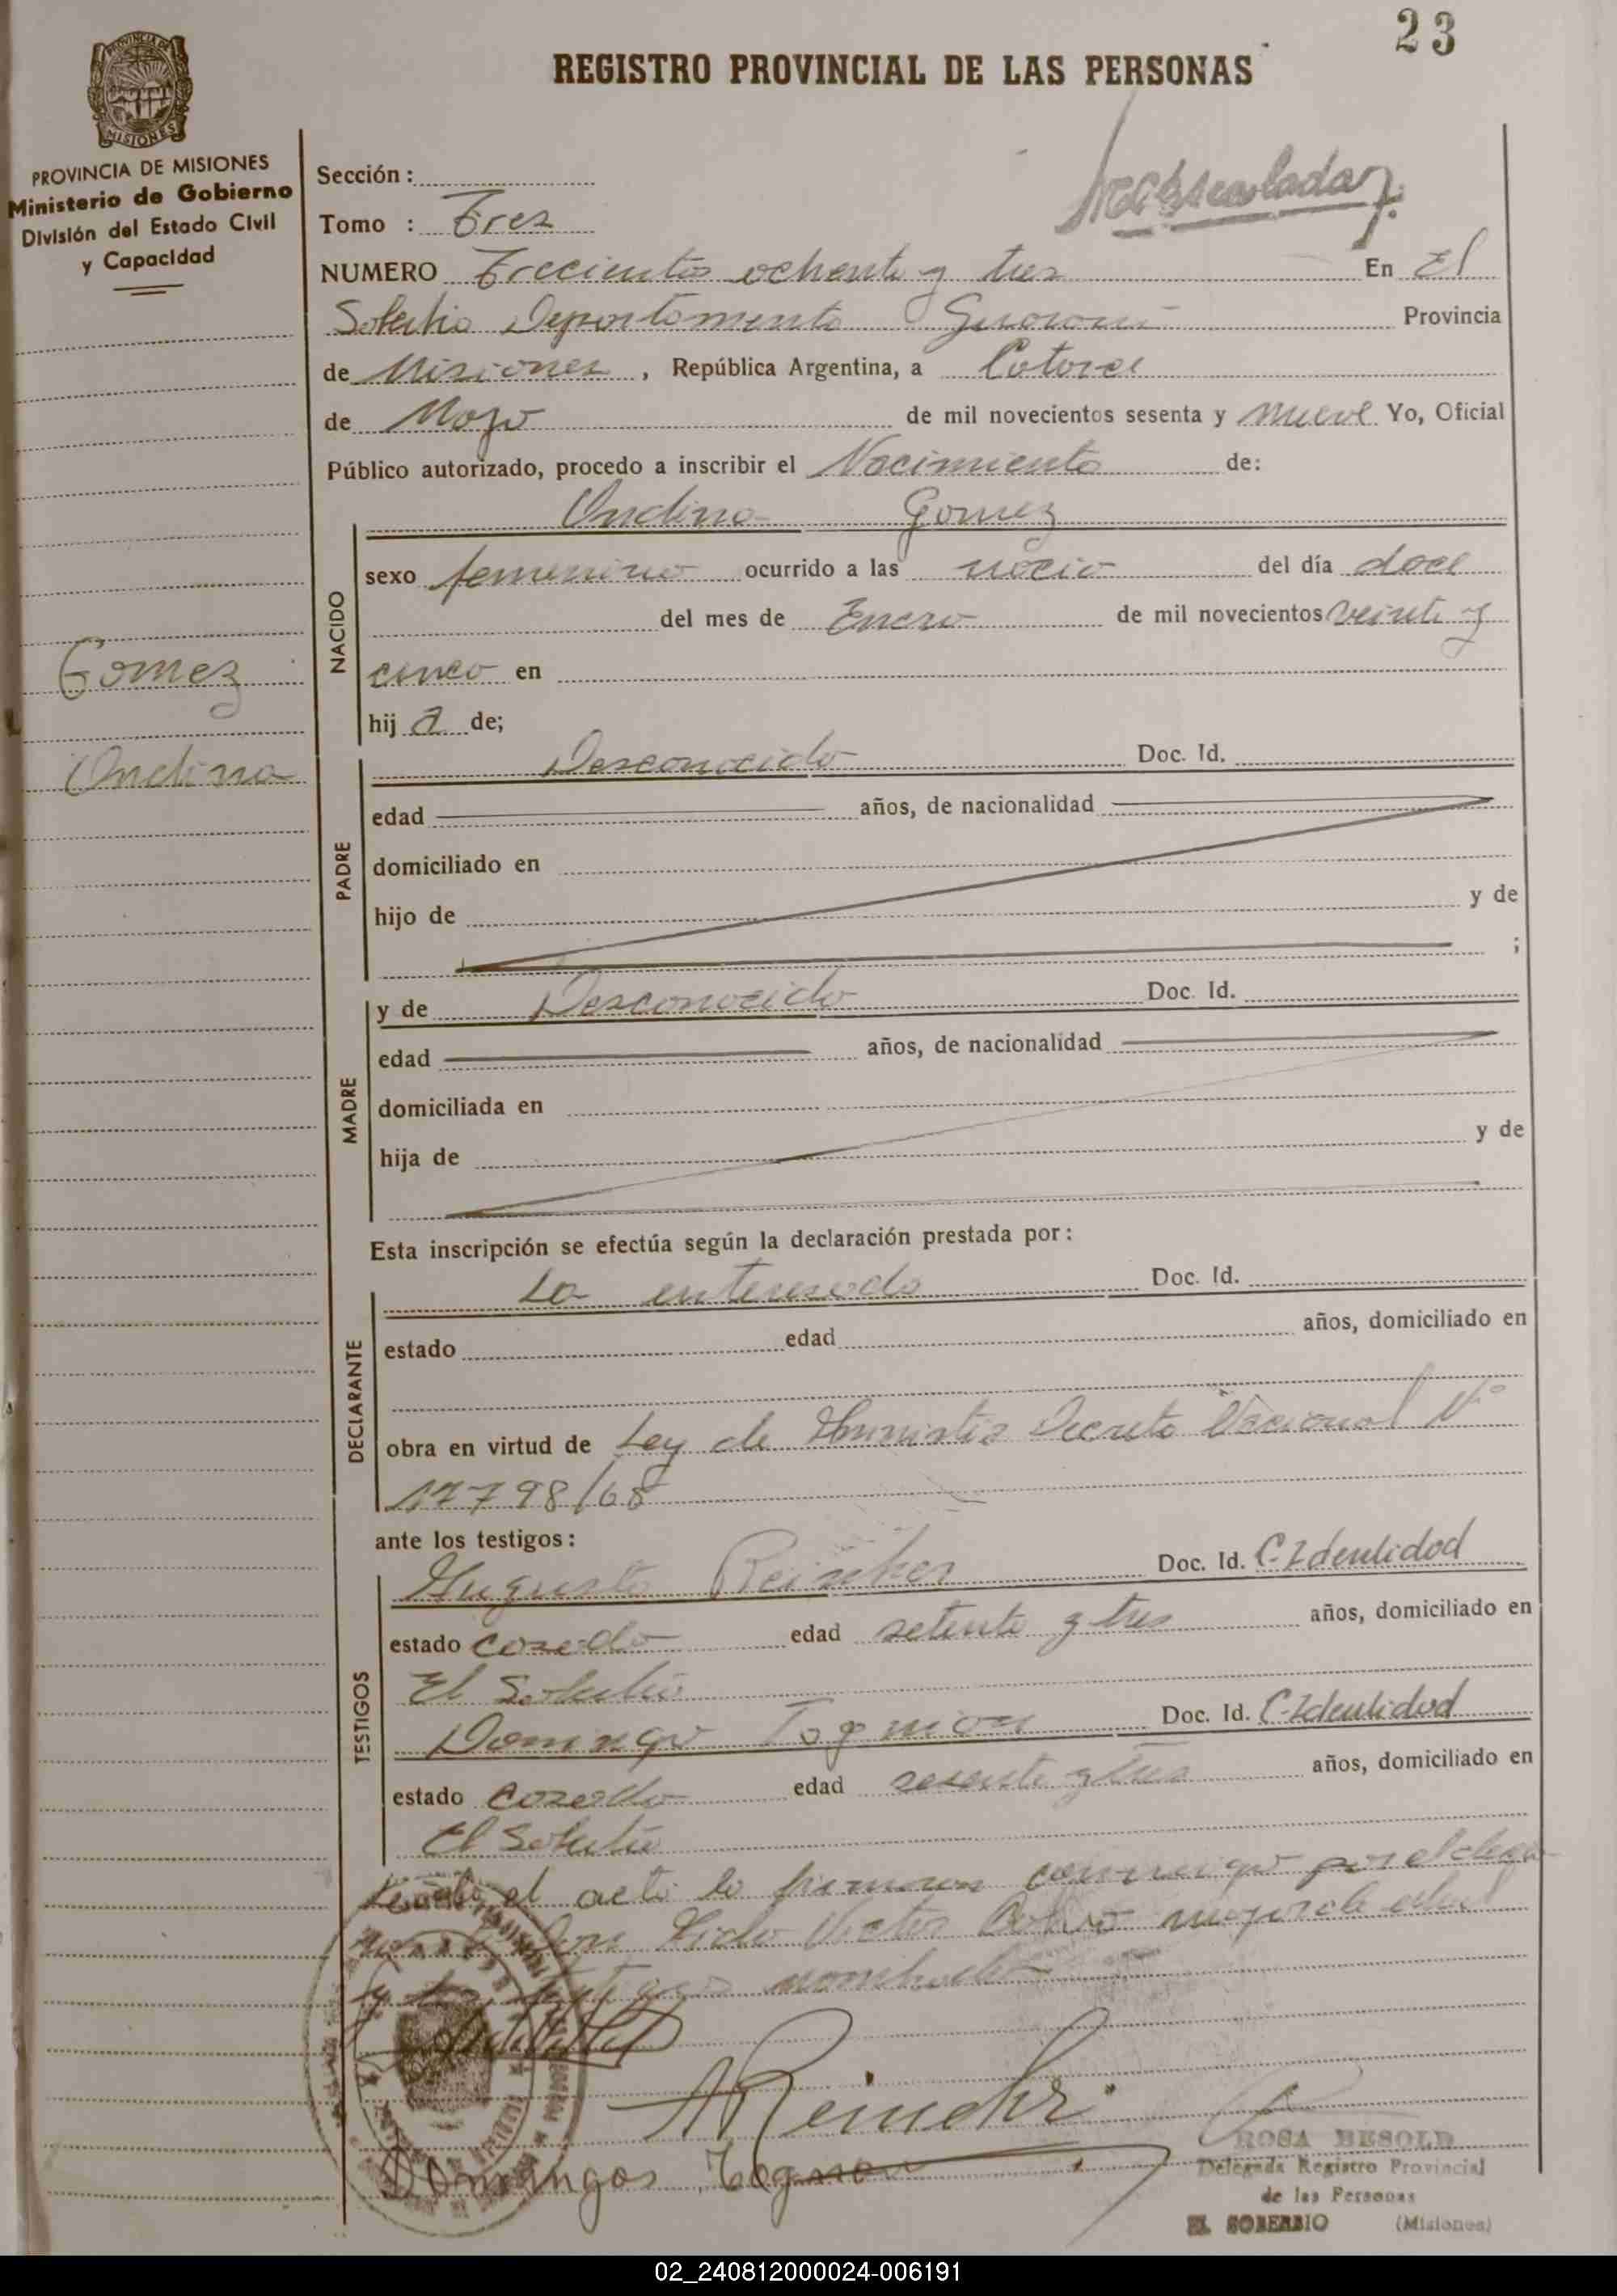 23
REGISTRO PROVINCIAL DE LAS PERSONAS
PROVINCIA DE MISIONES
Ministerio de Gobierno
División del Estado Civil
y Capacidad
Sección :
Tomo : Tres
NUMERO Trecientos ochenta y tres En El
Soberbio Departamento Guarani Provincia
de Misiones, República Argentina, a Catorce
de Mayo de mil novecientos sesenta y nueve Yo, Oficial
Público autorizado, procedo a inscribir el Nacimiento de:
Ondina Gomez
NACIDO
sexo femenino ocurrido a las del día doce
del mes de Enero de mil novecientos veinte y
cinco en
hij a de;
Gomez
Ondina
PADRE
Desconocido Doc. Id.
edad años, de nacionalidad
domiciliado en
hijo de y de
;
MADRE
y de Desconocido Doc. Id.
edad años, de nacionalidad
domiciliada en
hija de y de
Esta inscripción se efectúa según la declaración prestada por :
DECLARANTE
La enteresada Doc. Id.
estado edad años, domiciliado en
obra en virtud de Ley de Decreto Nacional Nº
17798/68
ante los testigos :
TESTIGOS
Augusto Doc. Id. C-Identidad
estado Casado edad setenta y tres años, domiciliado en
El Soberbio
Domingo Tognion Doc. Id. C-Identidad
estado Casado edad sesenta y tres años, domiciliado en
El Soberbio
el acto lo firman conmigo por
Victor mayor de edad
y los testigos
Domingos
ROSA BESOLD
Delegada Registro Provincial
de las Personas
EL SOBERBIO (Misiones)
02_240812000024-006191